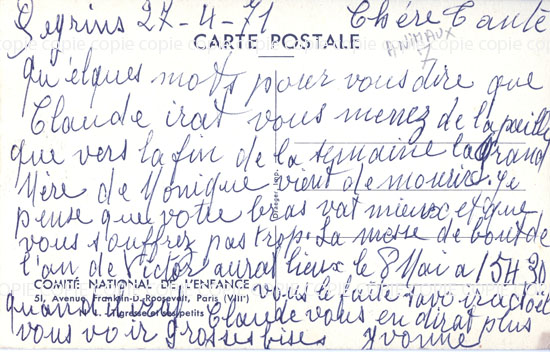 Leyrins 27-4-71 Chére Tante
CARTE POSTALE
ANIMAUX
7
Qu'élques mots pour vous dire que
Claude irat vous mennez de la paille
que vers la fin de la semaine la grand
Mère de Monique vient de mourir. Je
pense que votre bras vat mieux et que
vous souffrez pas trop. La messe de bout de
l'an de Victor aurat lieux le 8 Mai a 15H30
COMITÉ NATIONAL DE L'ENFANCE
51, Avenue Franklin-D.-Roosevelt, Paris (VIIIe)
Tigresse et ses petits
vous le faite savoir a
quand Claude vous en dirat plus
vous voir grosses bises Yvonne
copie copie copie copie